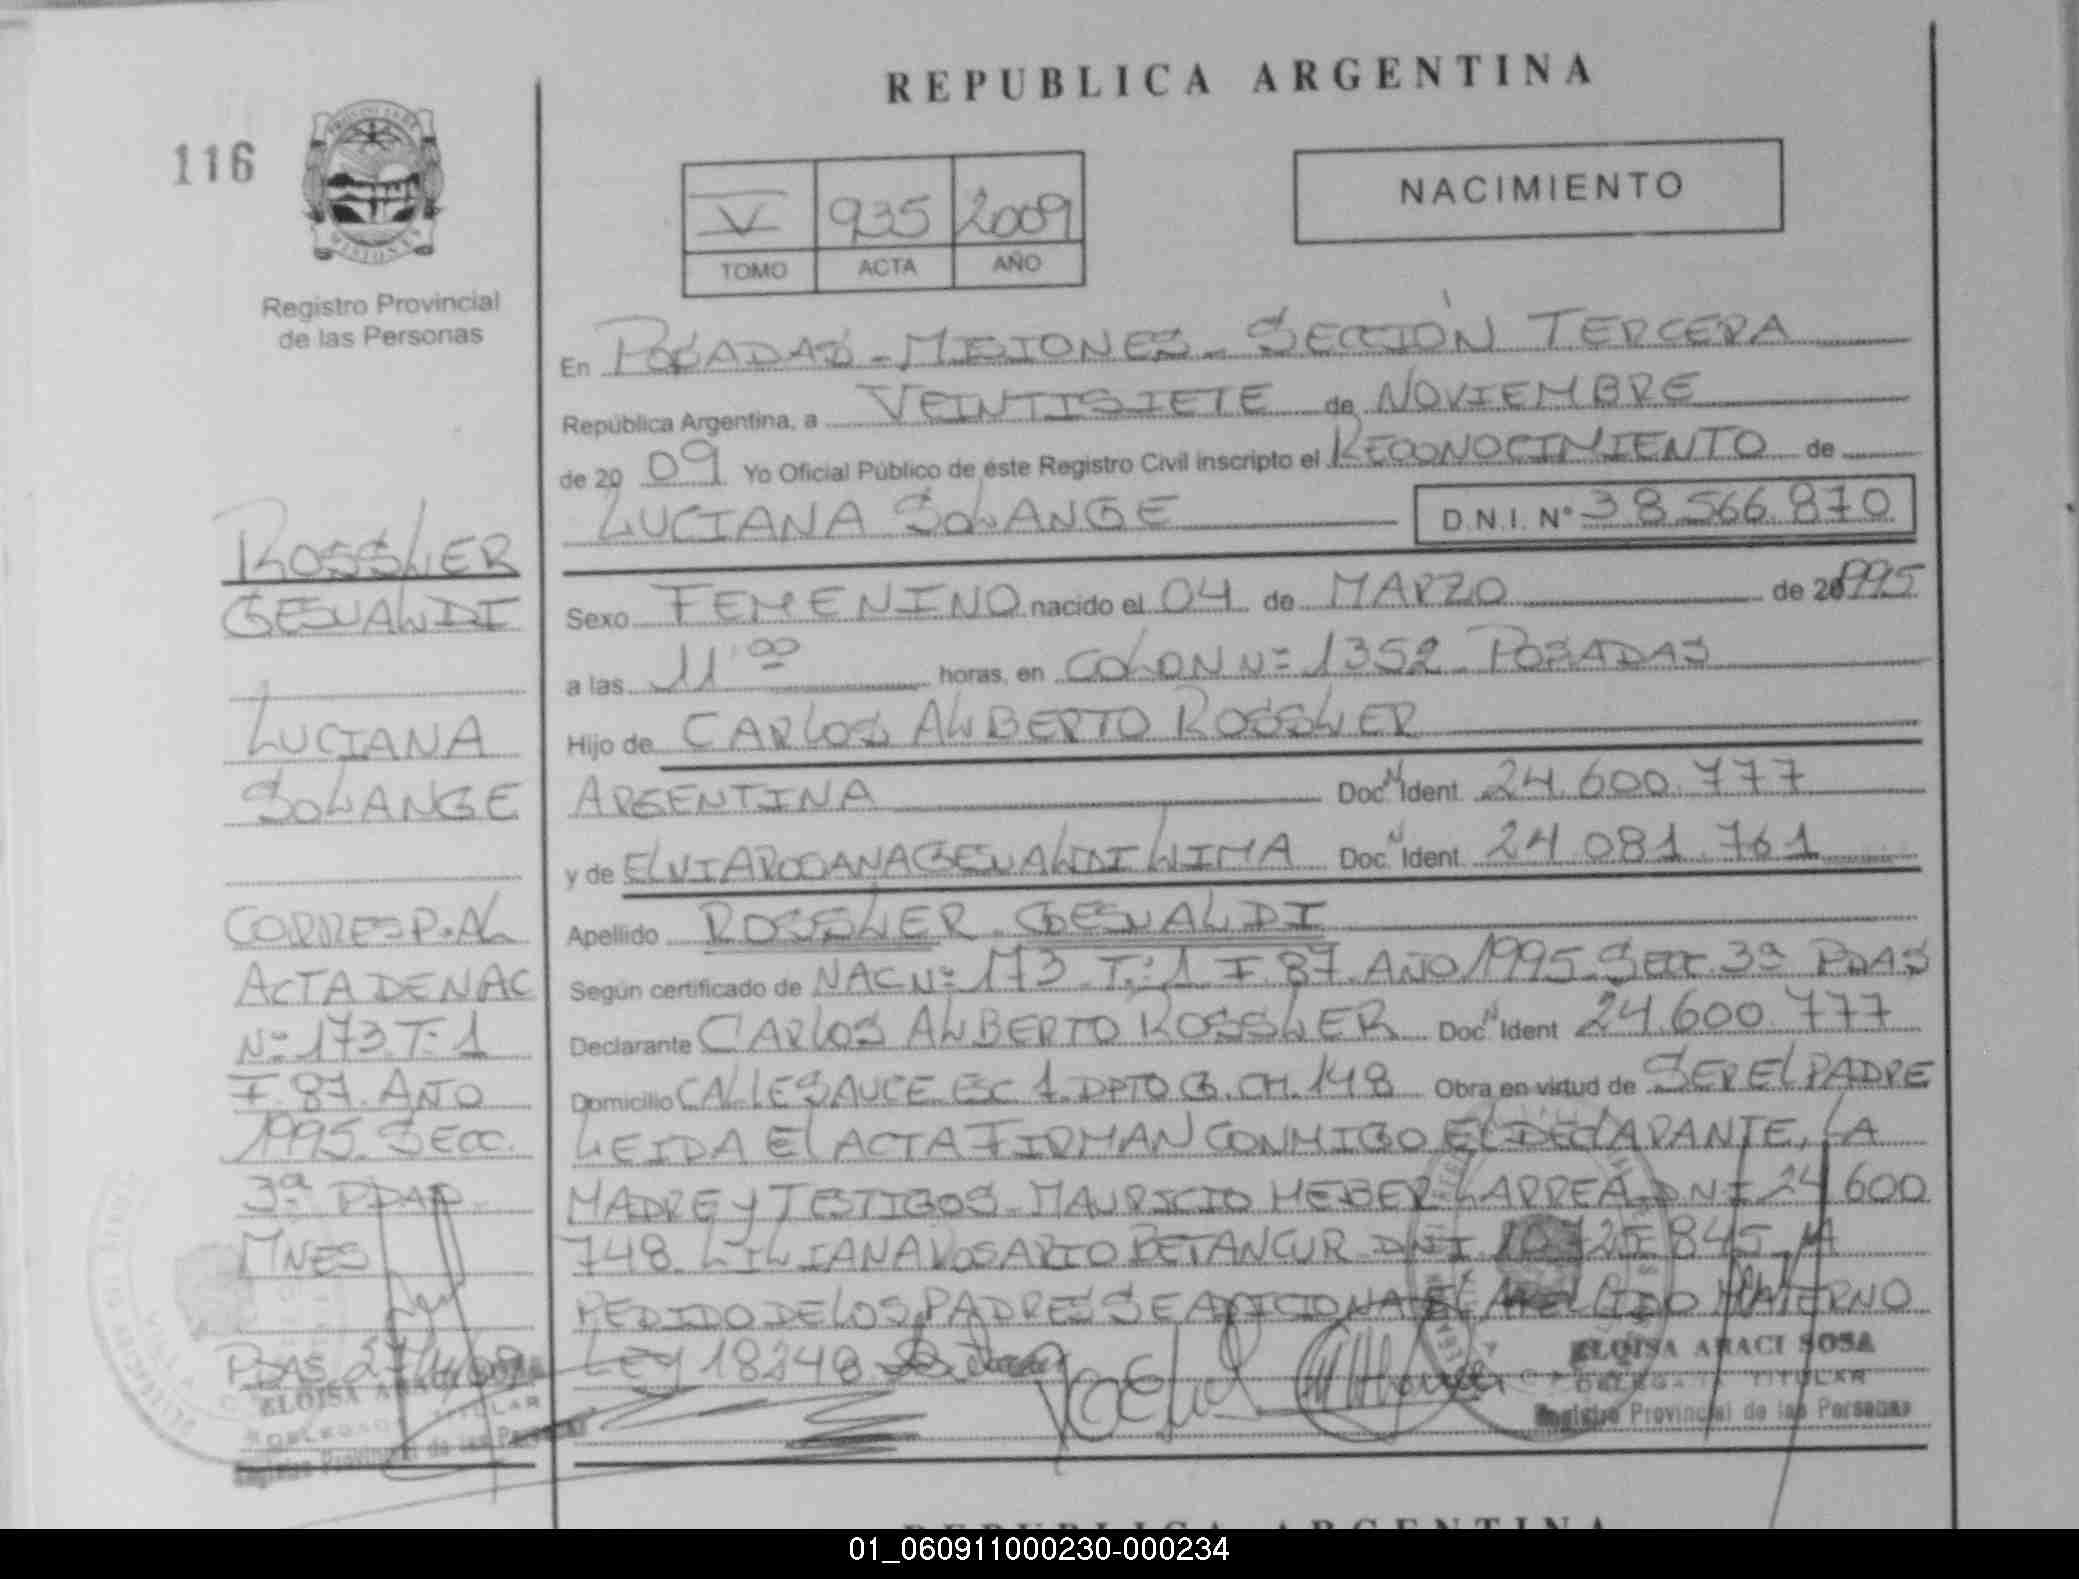 REPUBLICA ARGENTINA
116
NACIMIENTO
V 935 2009
TOMO ACTA AÑO
Registro Provincial
de las Personas
En POSADAS - MISIONES - SECCIÓN TERCERA
República Argentina, a VEINTISIETE de NOVIEMBRE
de 2009 Yo Oficial Público de éste Registro Civil inscripto el RECONOCIMIENTO de
LUCIANA SOLANGE D.N.I. Nº 38.566.870
ROSSLER
GESUALDI
LUCIANA
SOLANGE
CORRESP. AL
ACTA DE NAC
Nº 173 T: 1
F. 87. AÑO
1995. SECC.
3ª PDAS
MNES
PDAS 27/11/09
ELOISA ARACI SOSA
DELEGADA TITULAR
Registro Provincial de las Personas
Sexo FEMENINO nacido el 04 de MARZO de 1995
a las 11 00 horas, en COLON Nº 1352 POSADAS
Hijo de CARLOS ALBERTO ROSSLER
ARGENTINA Doc. N Ident 24.600.777
y de ELVIA ROSANA GESUALDI LIMA Doc. N Ident 24.081.761
Apellido ROSSLER GESUALDI
Según certificado de NAC Nº 173 T: 1 F. 87. AÑO 1995. SECC. 3ª PDAS
Declarante CARLOS ALBERTO ROSSLER Doc. N Ident 24.600.777
Domicilio CALLE SAUCE. ESC 1. DPTO B. CH. 148 Obra en virtud de SER EL PADRE
LEIDA EL ACTA FIRMAN CONMIGO EL DECLARANTE, LA
MADRE Y TESTIGOS - MAURICIO HEBER LARREA DNI 24 600
748. LILIANA ROSARIO BETANCUR DNI 845 - A
PEDIDO DE LOS PADRES SE ADICIONA EL APELLIDO MATERNO
LEY 18248
ELOISA ARACI SOSA
DELEGADA TITULAR
Registro Provincial de las Personas
REPUBLICA ARGENTINA
01_060911000230-000234